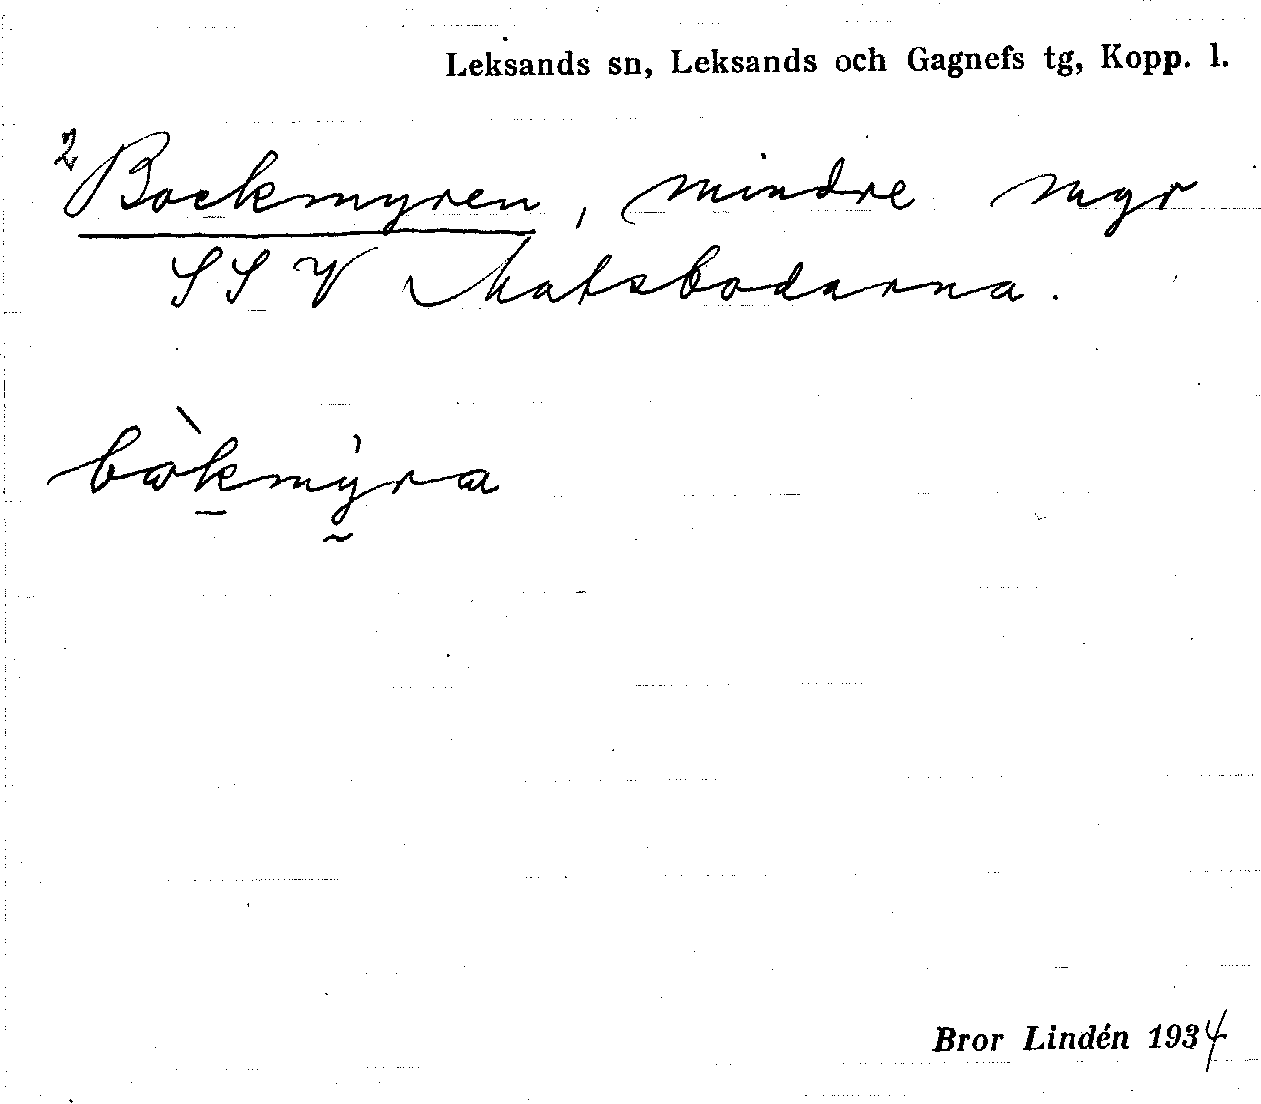 Leksands sn, Leksands och Gagnefs tg, Kopp. l.
2 Bockmyren, mindre myr
SSV Matsbodarna.
bòkmýra
Bror Lindén 1934